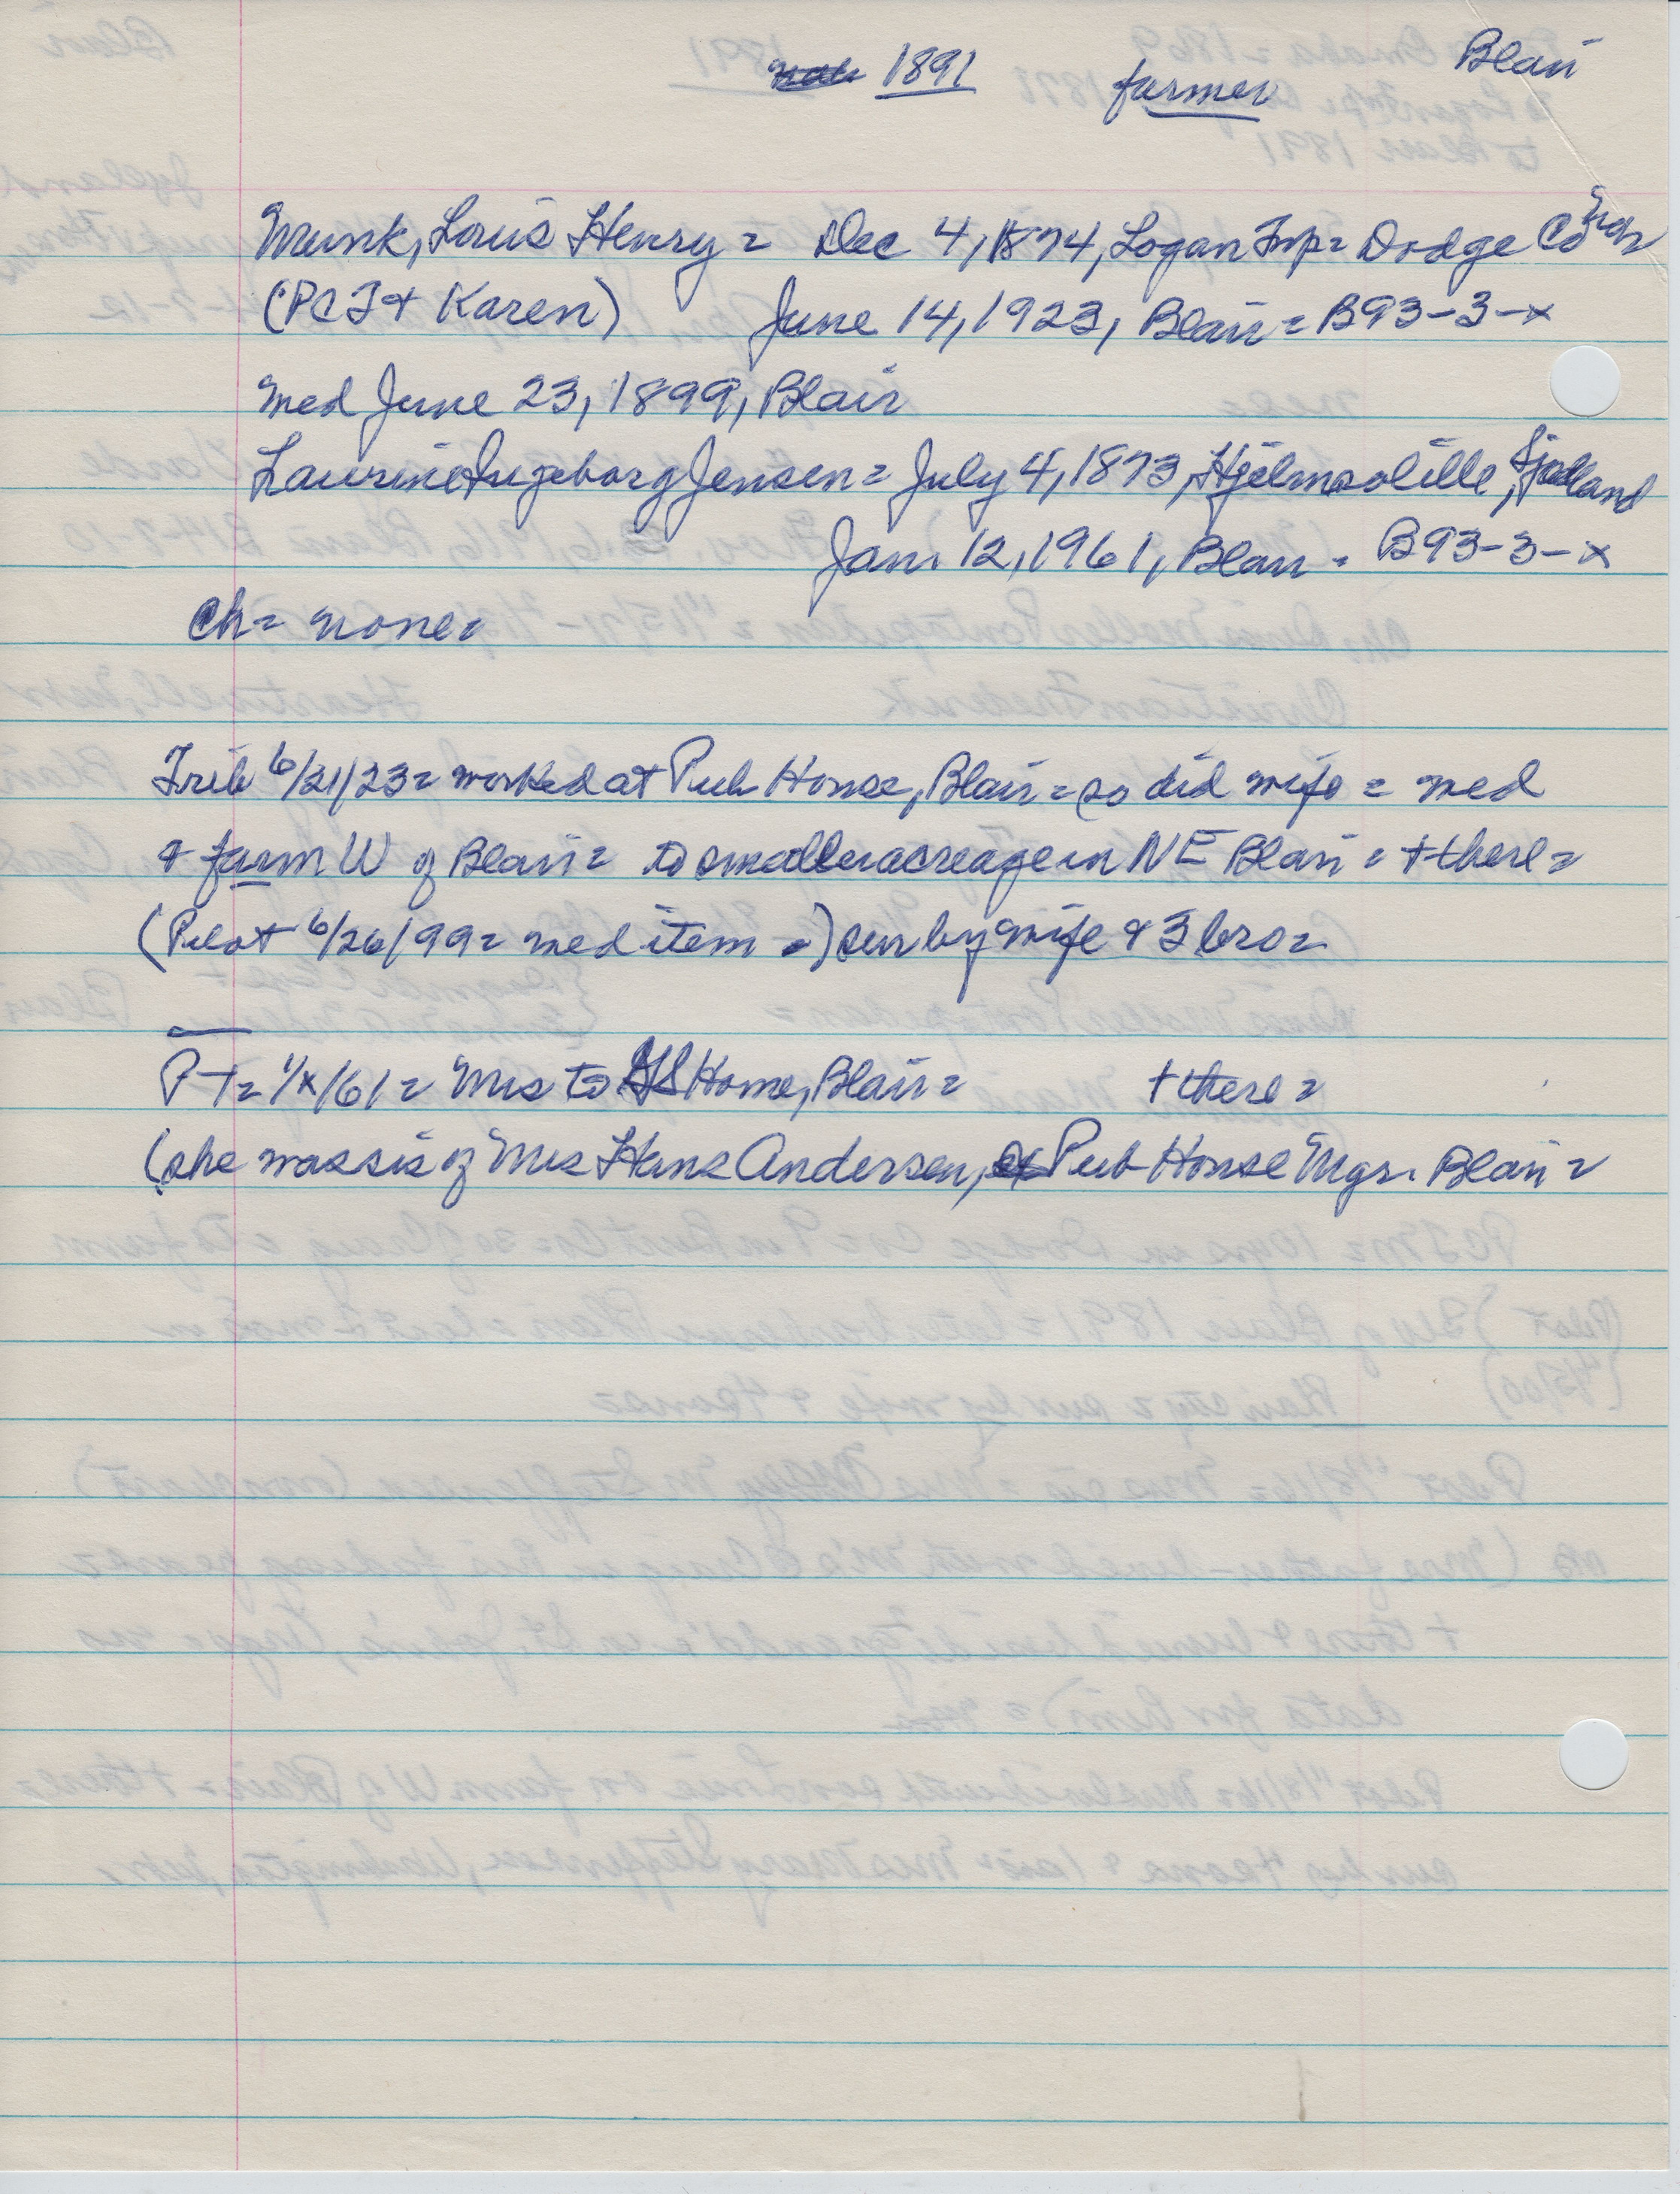 1891 farmer Blair
Munk, Louis Henry = Dec 4, 1874, Logan Twp = Dodge Co
(PCJ & Karen) June 14, 1923, Blair = B93-3-x
med June 23, 1899, Blair
Laurine Ingeborg Jensen = July 4, 1873, Hjelmsolille, Sjaelland
Jan. 12, 1961, Blair = B93-3-x
Ch = none =
Trib 6/21/23 = worked at Pub House, Blair = so did wife = med
& farm W of Blair = to smaller acreage in NE Blair = + there =
(Pilot 6/26/99 = med item =) sur by wife & 3 bro =
PT = 1/x/61 = Mrs to Home, Blair = + there =
(she was sis of Mrs Hans Andersen, Pub House Mgr. Blair =